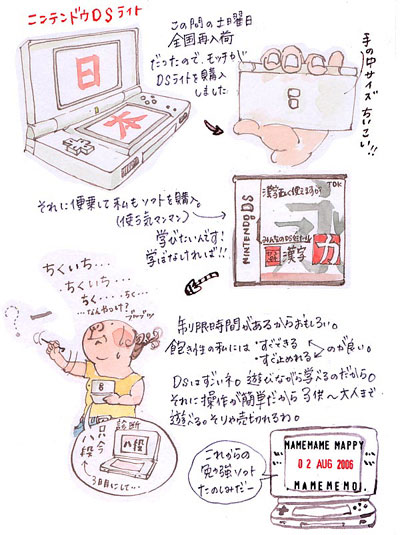 ニンテンドウDSライト
日
本
この間の土曜日
全国再入荷
だったので、モッチが
DSライトを購入
しました
手の中サイズ ちいこい!!
それに便乗して私もソフトを購入。
(使う気マンマン)
学びたいんです!
学ばなければ!!
NINTENDO DS
漢字正しく使えますか?
TDK
みんなのDSゼミナール
漢字
力
ちくいち…
ちくいち…
ちく…ちく…
…なんやっけ?
ブツブツ
?
制限時間があるからおもしろい。
飽き性の私には・すぐできる
・すぐ止めれる
のが良い。
DSはすごいネ。遊びながら学べるのだから。
それに操作が簡単だから子供〜大人まで
遊べる。そりゃ売切れるわ。
診断
八段
八段
3日目にして…
これからの
勉強ソフト
たのしみだー
MAMEMAME MAPPY
02 AUG 2006
MAMEMEMO